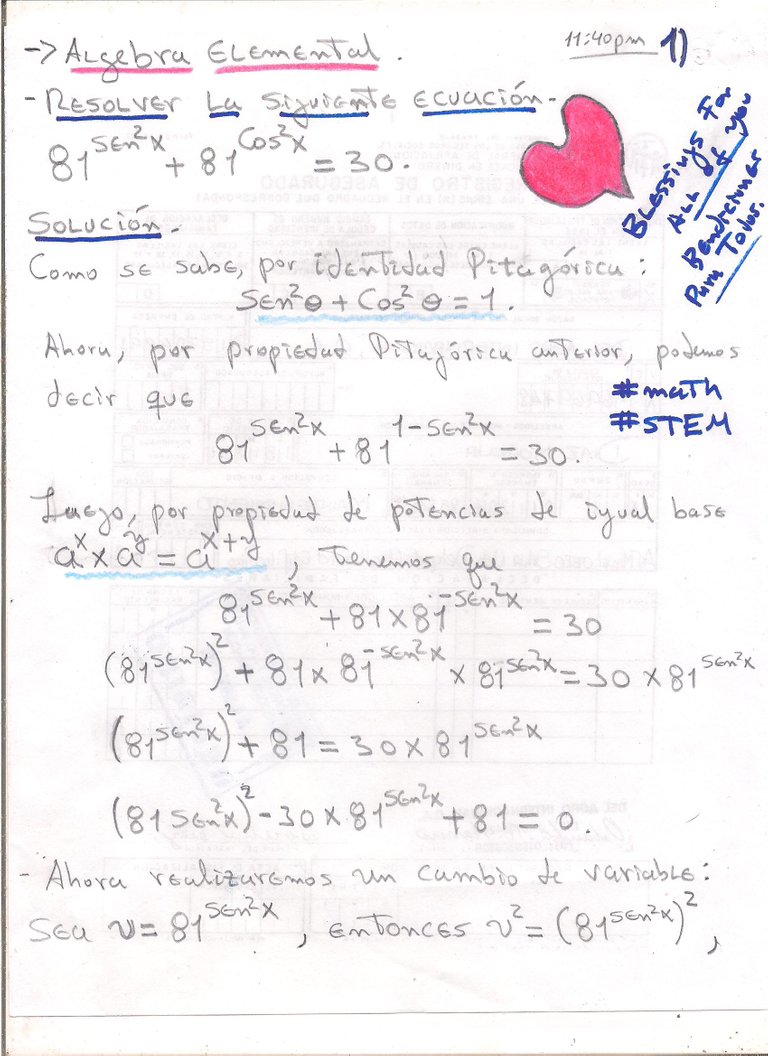 11:40pm 1)
-> Algebra Elemental.
- Resolver la siguiente ecuación.
81^sen²x + 81^cos²x = 30.
Blessings For
All of you
Bendiciones
Para Todos.
Solución.
Como se sabe, por identidad Pitagórica:
sen²θ + cos²θ = 1.
Ahora, por propiedad Pitagórica anterior, podemos
decir que
#math
#STEM
81^sen²x + 81^1-sen²x = 30.
Luego, por propiedad de potencias de igual base
a^x × a^y = a^x+y, tenemos que
81^sen²x + 81 × 81^-sen²x = 30
(81^sen²x)² + 81 × 81^-sen²x × 81^sen²x = 30 × 81^sen²x
(81^sen²x)² + 81 = 30 × 81^sen²x
(81 sen²x)² - 30 × 81^sen²x + 81 = 0.
- Ahora realizaremos un cambio de variable:
Sea v = 81^sen²x, entonces v² = (81^sen²x)²,